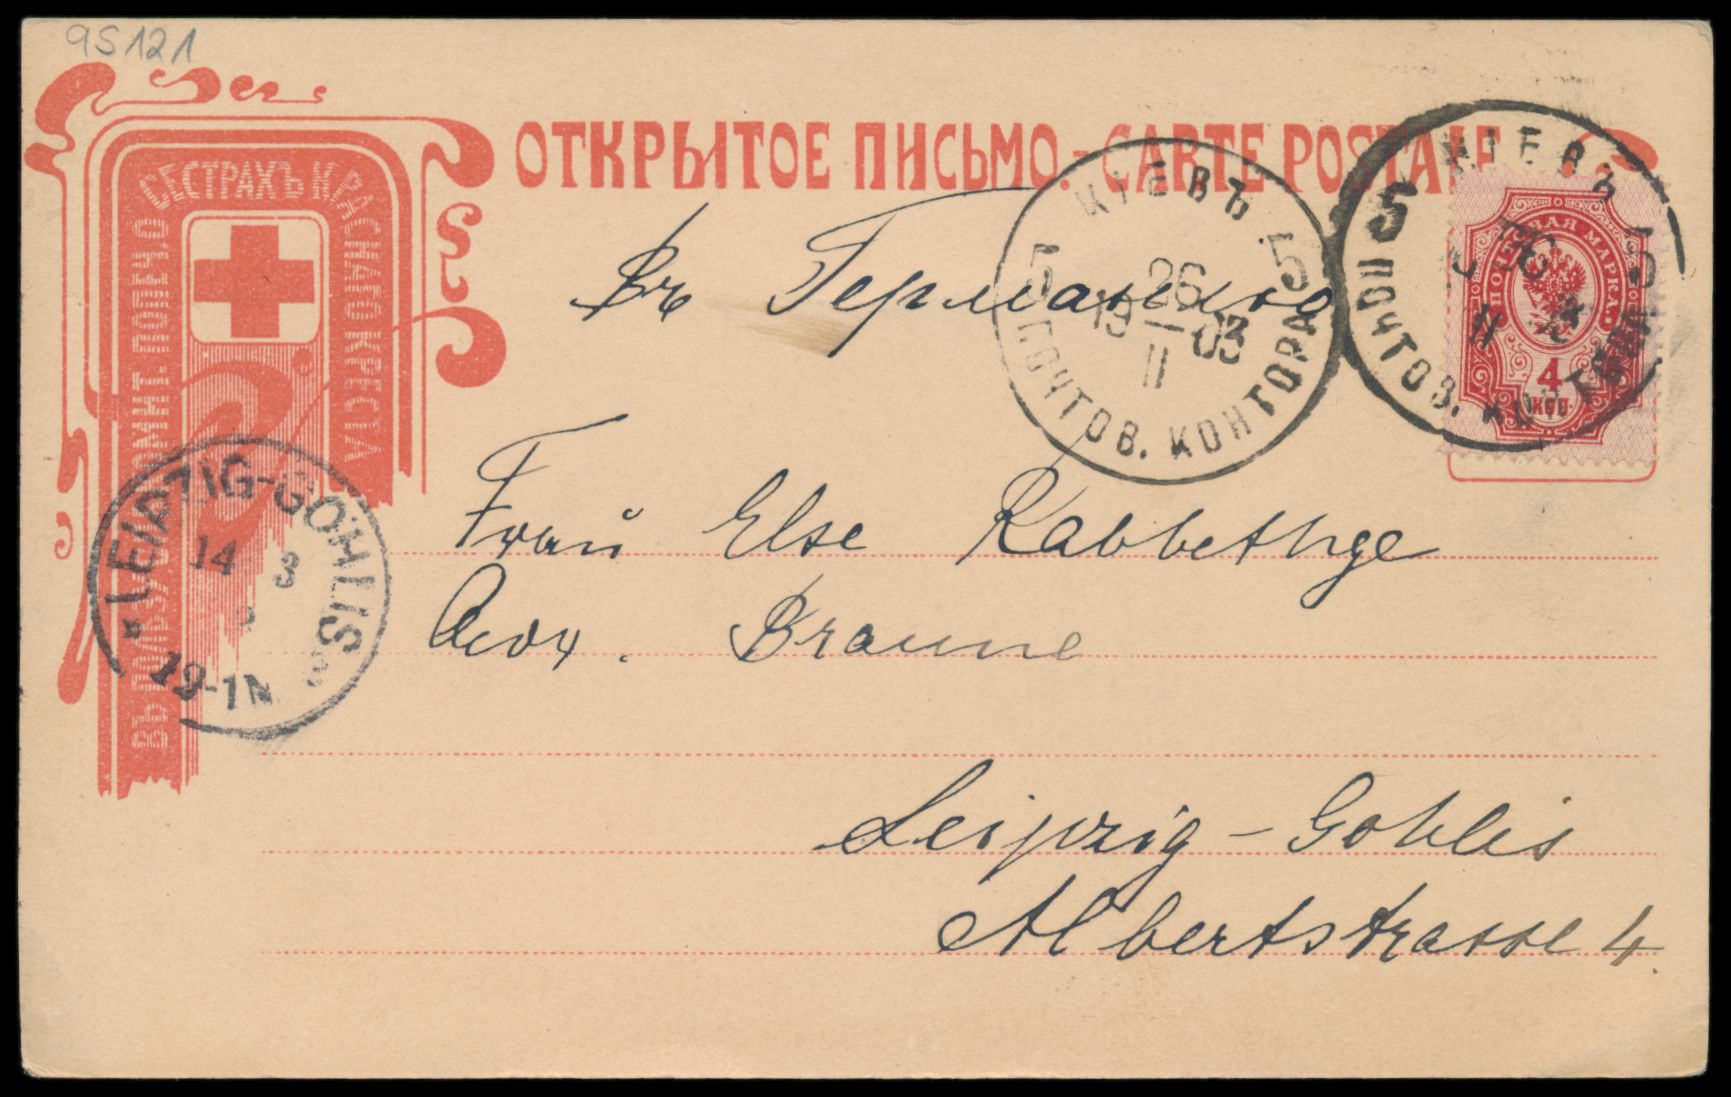 95121
ОТКРЫТОЕ ПИСЬМО.-CARTE POSTALE
ВЪ ПОЛЬЗУ КОМИТ. ПОПЕЧ. О СЕСТРАХЪ КРАСНАГО КРЕСТА
КІЕВЪ
5 5
26
19—03
II
ПОЧТОВ. КОНТОРА
КІЕВЪ
5
II
ПОЧТОВ. КОНТОРА
ПОЧТОВАЯ МАРКА
4
КОП.
Въ Германию
Frau Else Rabbethge
Braune
Leipzig-Gohlis
Albertstrasse 4.
LEIPZIG-GOHLIS
14 3
12-1N